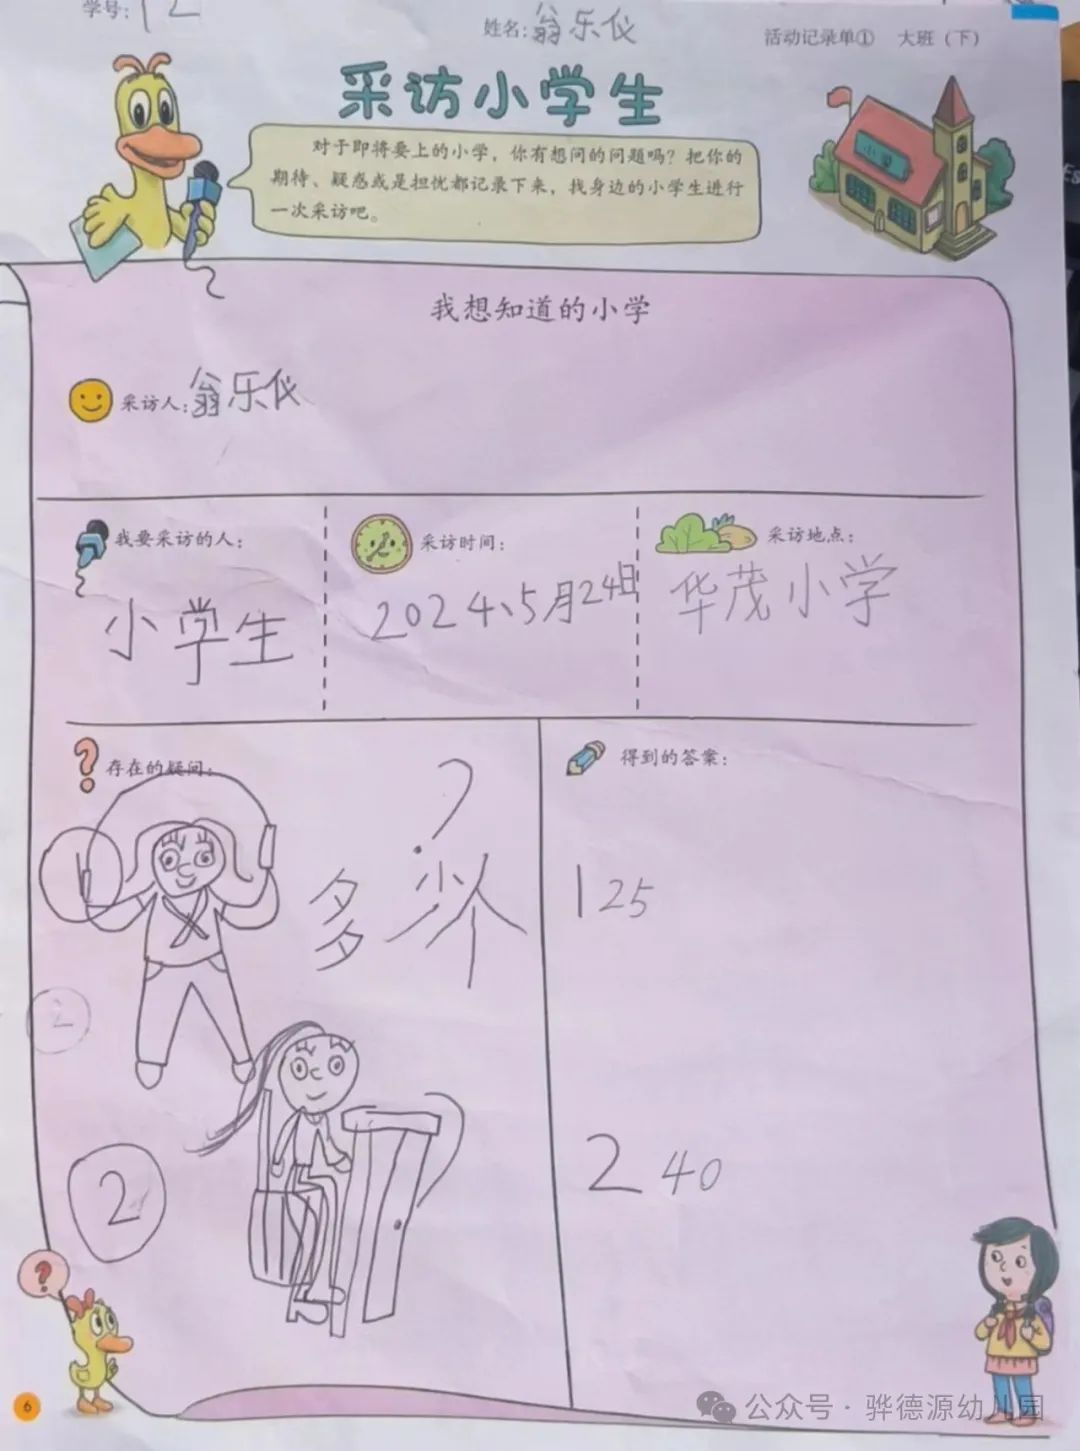 学号: 12
姓名: 翁乐仪
活动记录单① 大班（下）
采访小学生
对于即将要上的小学，你有想问的问题吗？把你的
期待、疑惑或是担忧都记录下来，找身边的小学生进行
一次采访吧。
小学
我想知道的小学
采访人: 翁乐仪
我要采访的人:
小学生
采访时间:
2024、5月24日
采访地点:
华茂小学
?
存在的疑问:
1
?
多少个
2
2
?
得到的答案:
1 25
2 40
?
6
公众号·骅德源幼儿园